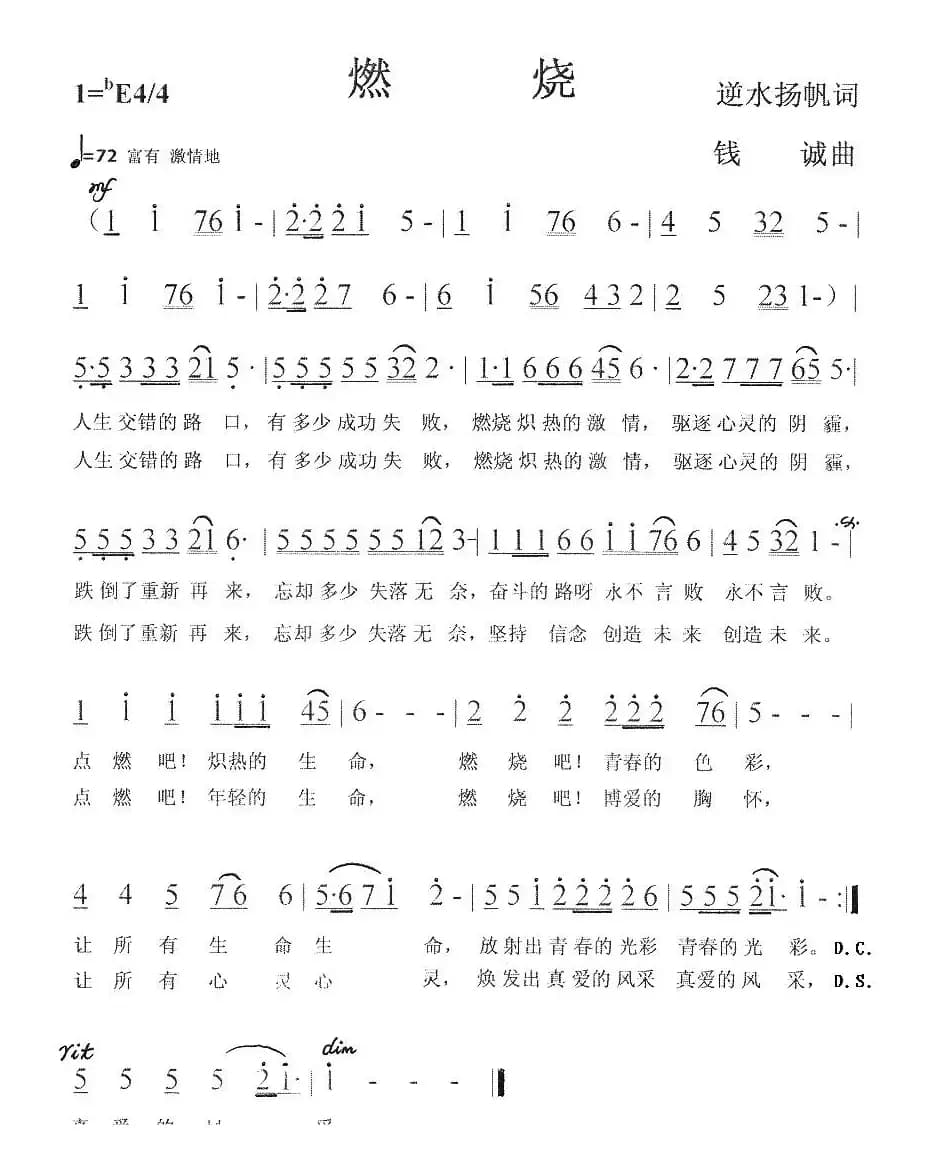 燃 烧
1=ᵇE4/4
逆水扬帆词
♩=72 富有 激情地
钱 诚曲
mf
(1 i 76 i - | 2·2 2 i 5 - | 1 i 76 6 - | 4 5 32 5 - |
1 i 76 i - | 2·2 2 7 6 - | 6 i 56 4 3 2 | 2 5 23 1 - ) |
5·5 3 3 3 21 5· | 5 5 5 5 5 32 2· | 1·1 6 6 6 45 6· | 2·2 7 7 7 65 5· |
人生 交错的 路 口, 有 多少 成功 失 败, 燃烧 炽 热 的 激 情, 驱逐 心灵 的 阴 霾,
人生 交错的 路 口, 有 多少 成功 失 败, 燃烧 炽 热 的 激 情, 驱逐 心灵 的 阴 霾,
5 5 5 3 3 21 6· | 5 5 5 5 5 5 12 3 - | 1 1 1 6 6 i i 76 6 | 4 5 32 1 - |
跌 倒了重新 再 来, 忘却 多少 失落 无 奈, 奋斗 的 路呀 永不 言 败 永不 言 败。
跌 倒了重新 再 来, 忘却 多少 失落 无 奈, 坚持 信念 创造 未 来 创造 未 来。
1 i i i i i 45 | 6 - - - | 2 2 2 2 2 2 76 | 5 - - - |
点 燃 吧! 炽热的 生 命, 燃 烧 吧! 青春的 色 彩,
点 燃 吧! 年轻的 生 命, 燃 烧 吧! 博爱的 胸 怀,
4 4 5 7 6 6 | 5·6 7 i 2 - | 5 5 i 2 2 2 2 6 | 5 5 5 2 i· i - :‖
让 所 有 生 命 生 命, 放射出 青春 的 光彩 青春的 光 彩。 D.C.
让 所 有 心 灵 心 灵, 焕发出 真 爱 的 风采 真爱的 风 采, D.S.
rit dim
5 5 5 5 2 i· | i - - - ‖